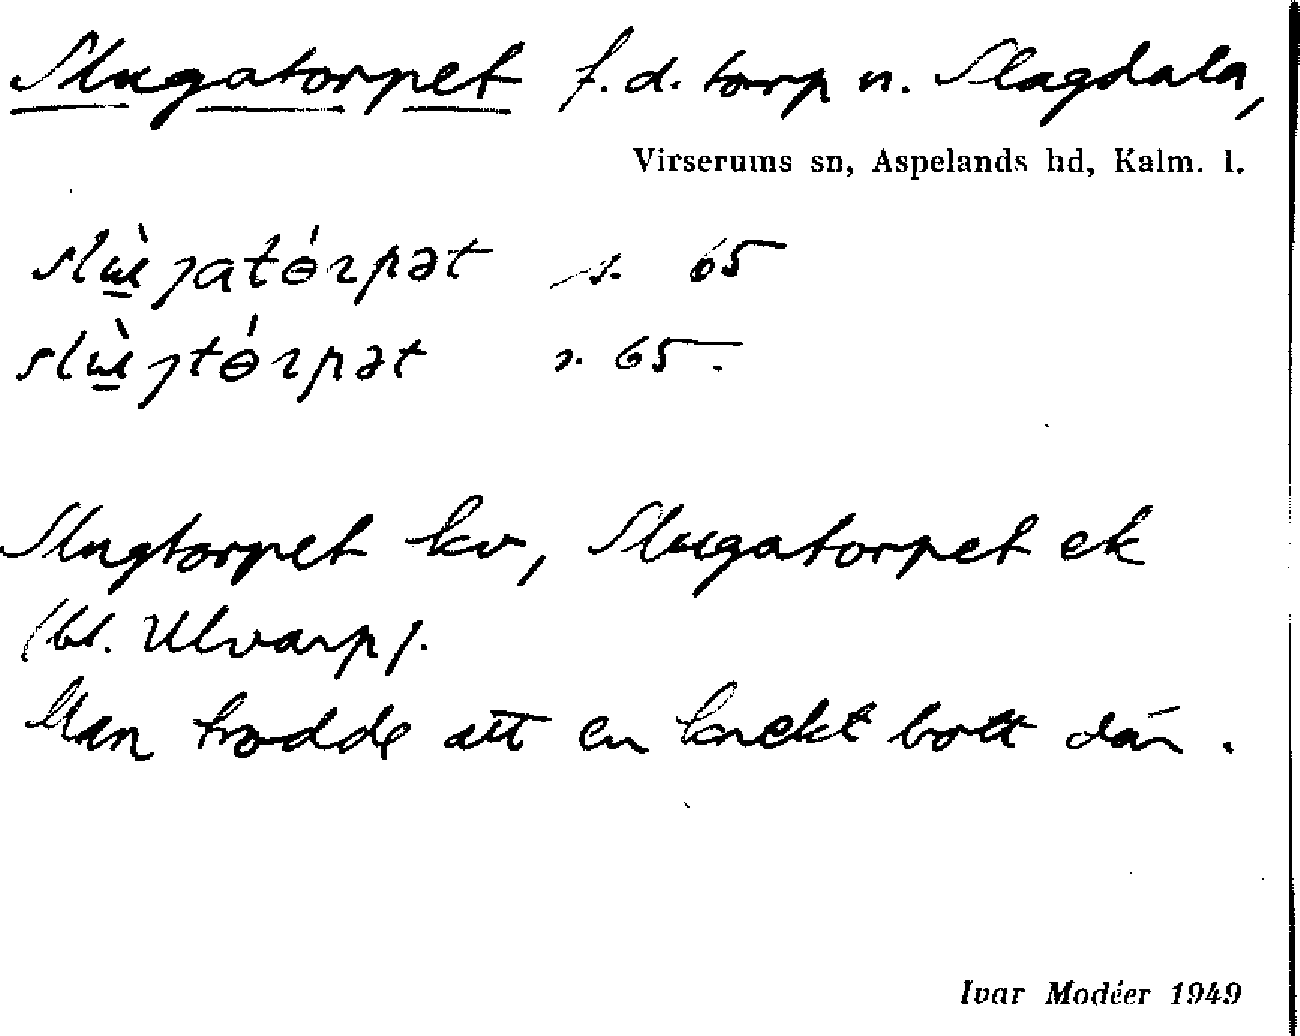 Slugatorpet f.d. torp n. Slagdala,
Virserums sn, Aspelands hd, Kalm. l.
slɯ̀ɡatɵ́rpət s. 65
slɯ̀ɡtɵ́rpət s. 65.
Slugtorpet kv, Slugatorpet ek
(bl. Ulvarp).
Man trodde att en knekt bott där.
Ivar Modéer 1949